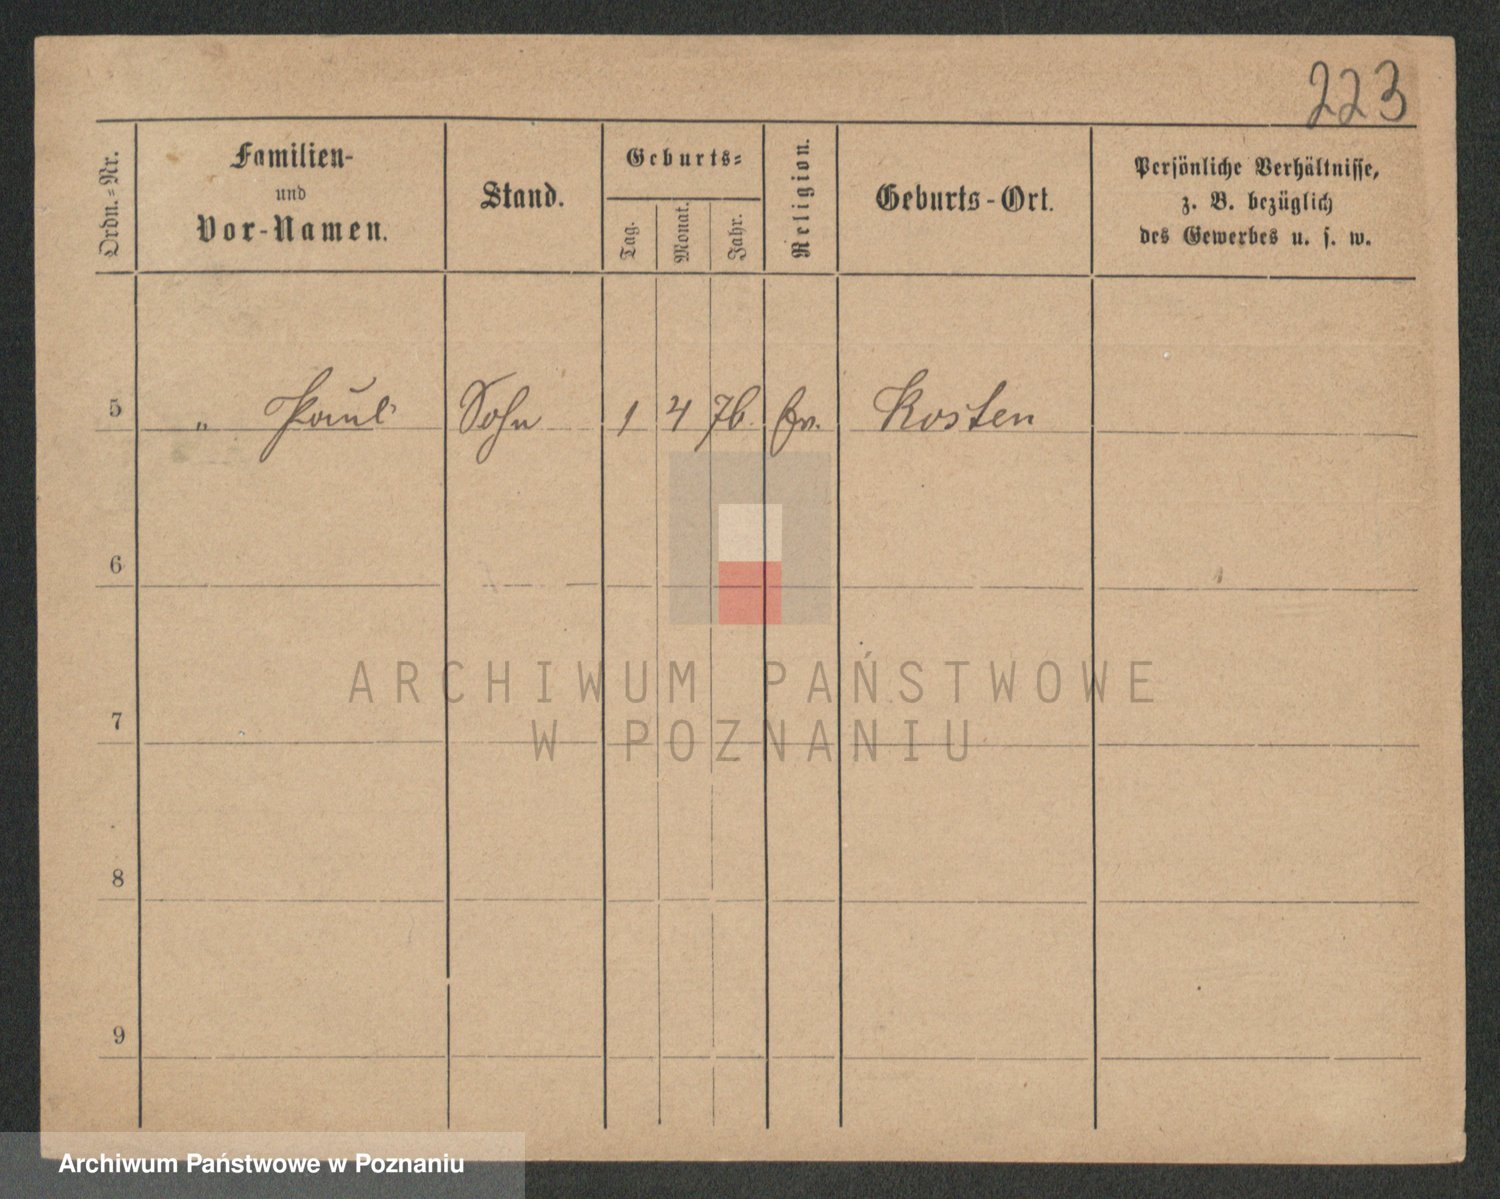 223
Ordn.-Nr.
Familien-
und
Vor-Namen.
Stand.
Geburts-
Tag.
Monat.
Jahr.
Religion.
Geburts-Ort.
Persönliche Verhältnisse,
z. B. bezüglich
des Gewerbes u. s. w.
5 „ Paul Sohn 1 4 76. Ev. Kosten
6
7
8
9
ARCHIWUM PAŃSTWOWE
W POZNANIU
Archiwum Państwowe w Poznaniu